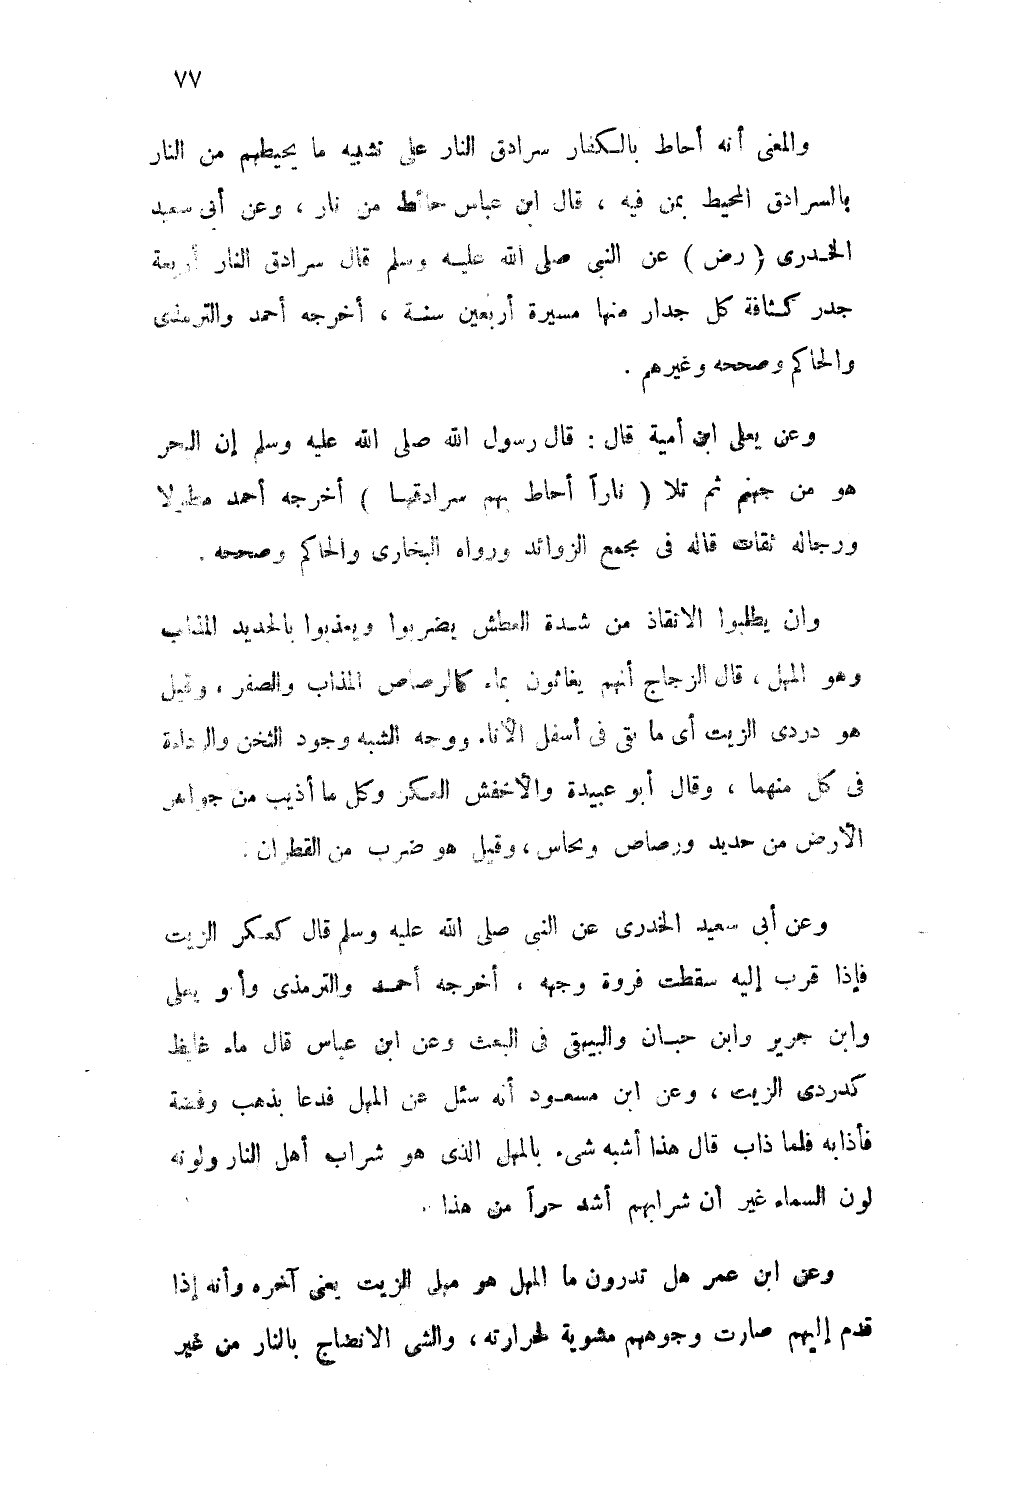 ٧٧
والمعنى أنه أحاط بالكفار سرادق النار على تشبيه ما يحيطهم من النار
بالسرادق المحيط بمن فيه ، قال ابن عباس حائط من نار ، وعن أبى سعيد
الخدرى ( رض ) عن النبى صلى الله عليه وسلم قال سرادق النار أربعة
جدر كثافة كل جدار منها مسيرة أربعين سنة ، أخرجه أحمد والترمذى
والحاكم وصححه وغيرهم .
وعن يعلى ابن أمية قال : قال رسول الله صلى الله عليه وسلم إن البحر
هو من جهنم ثم تلا ( ناراً أحاط بهم سرادقها ) أخرجه أحمد مطولا
ورجاله ثقات قاله فى مجمع الزوائد ورواه البخارى والحاكم وصححه .
وان يطلبوا الانقاذ من شدة العطش يضربوا ويعذبوا بالحديد المذاب
وهو المهل ، قال الزجاج أنهم يغاثون بماء كالرصاص المذاب والصفر ، وقيل
هو دردى الزيت أى ما بقى فى أسفل الأناء ووجه الشبه وجود الثخن والرداءة
فى كل منهما ، وقال أبو عبيدة والأخفش العكر وكل ما أذيب من جواهر
الأرض من حديد ورصاص ونحاس ، وقيل هو ضرب من القطران .
وعن أبى سعيد الخدرى عن النبى صلى الله عليه وسلم قال كعكر الزيت
فإذا قرب إليه سقطت فروة وجهه ، أخرجه أحمد والترمذى وأبو يعلى
وابن جرير وابن حبان والبيهقى فى البعث وعن ابن عباس قال ماء غليظ
كدردى الزيت ، وعن ابن مسعود أنه سئل عن المهل فدعا بذهب وفضة
فأذابه فلما ذاب قال هذا أشبه شىء بالمهل الذى هو شراب أهل النار ولونه
لون السماء غير أن شرابهم أشد حراً من هذا .
وعن ابن عمر هل تدرون ما المهل هو مهل الزيت يعنى آخره وأنه إذا
قدم إليهم صارت وجوههم مشوية لحرارته ، والشى الانضاج بالنار من غير